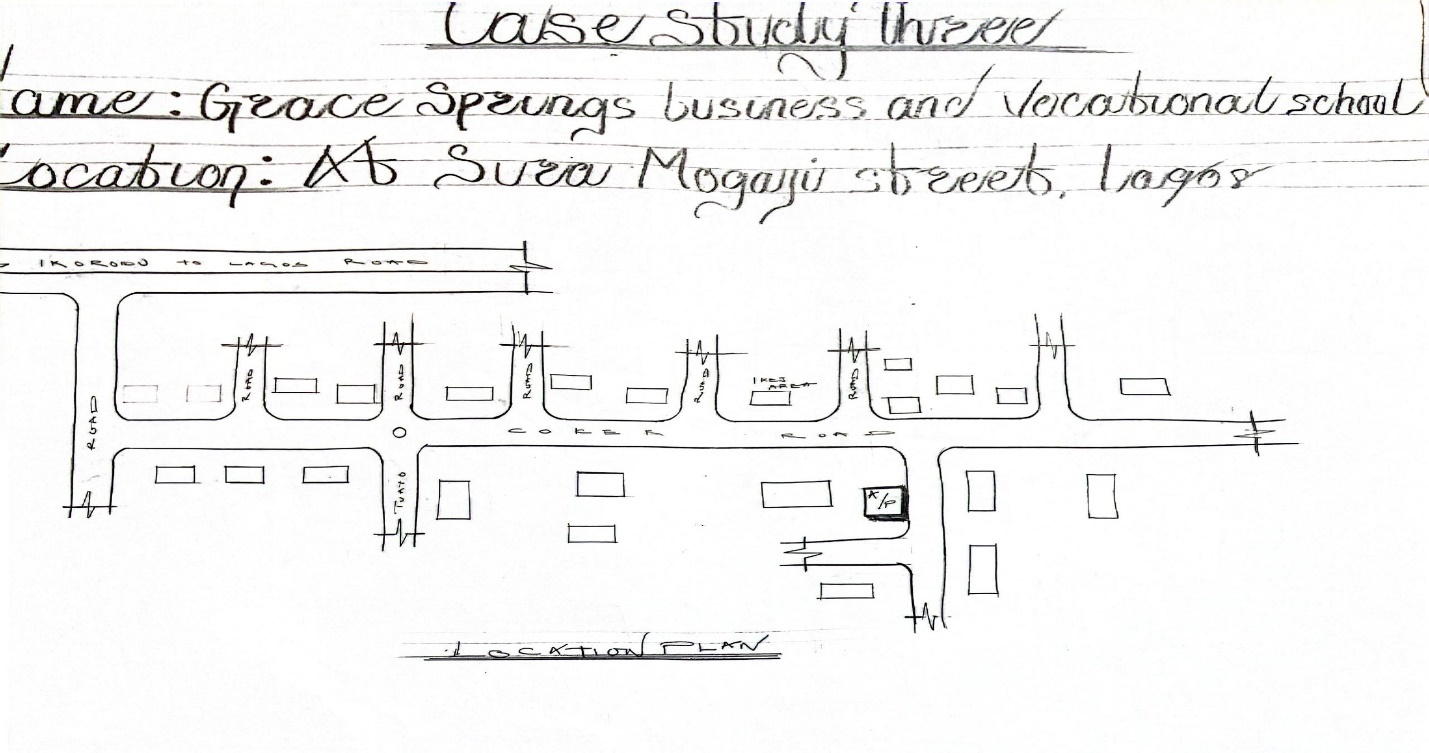 Case Study Three
ame: Grace Springs business and Vocational school
Location: At Sura Mogaji street, Lagos
IKORODU TO LAGOS ROAD
ROAD
ROAD
ROAD
ROAD
ROAD
AREA
ROAD
COKER ROAD
A/P
LOCATION PLAN